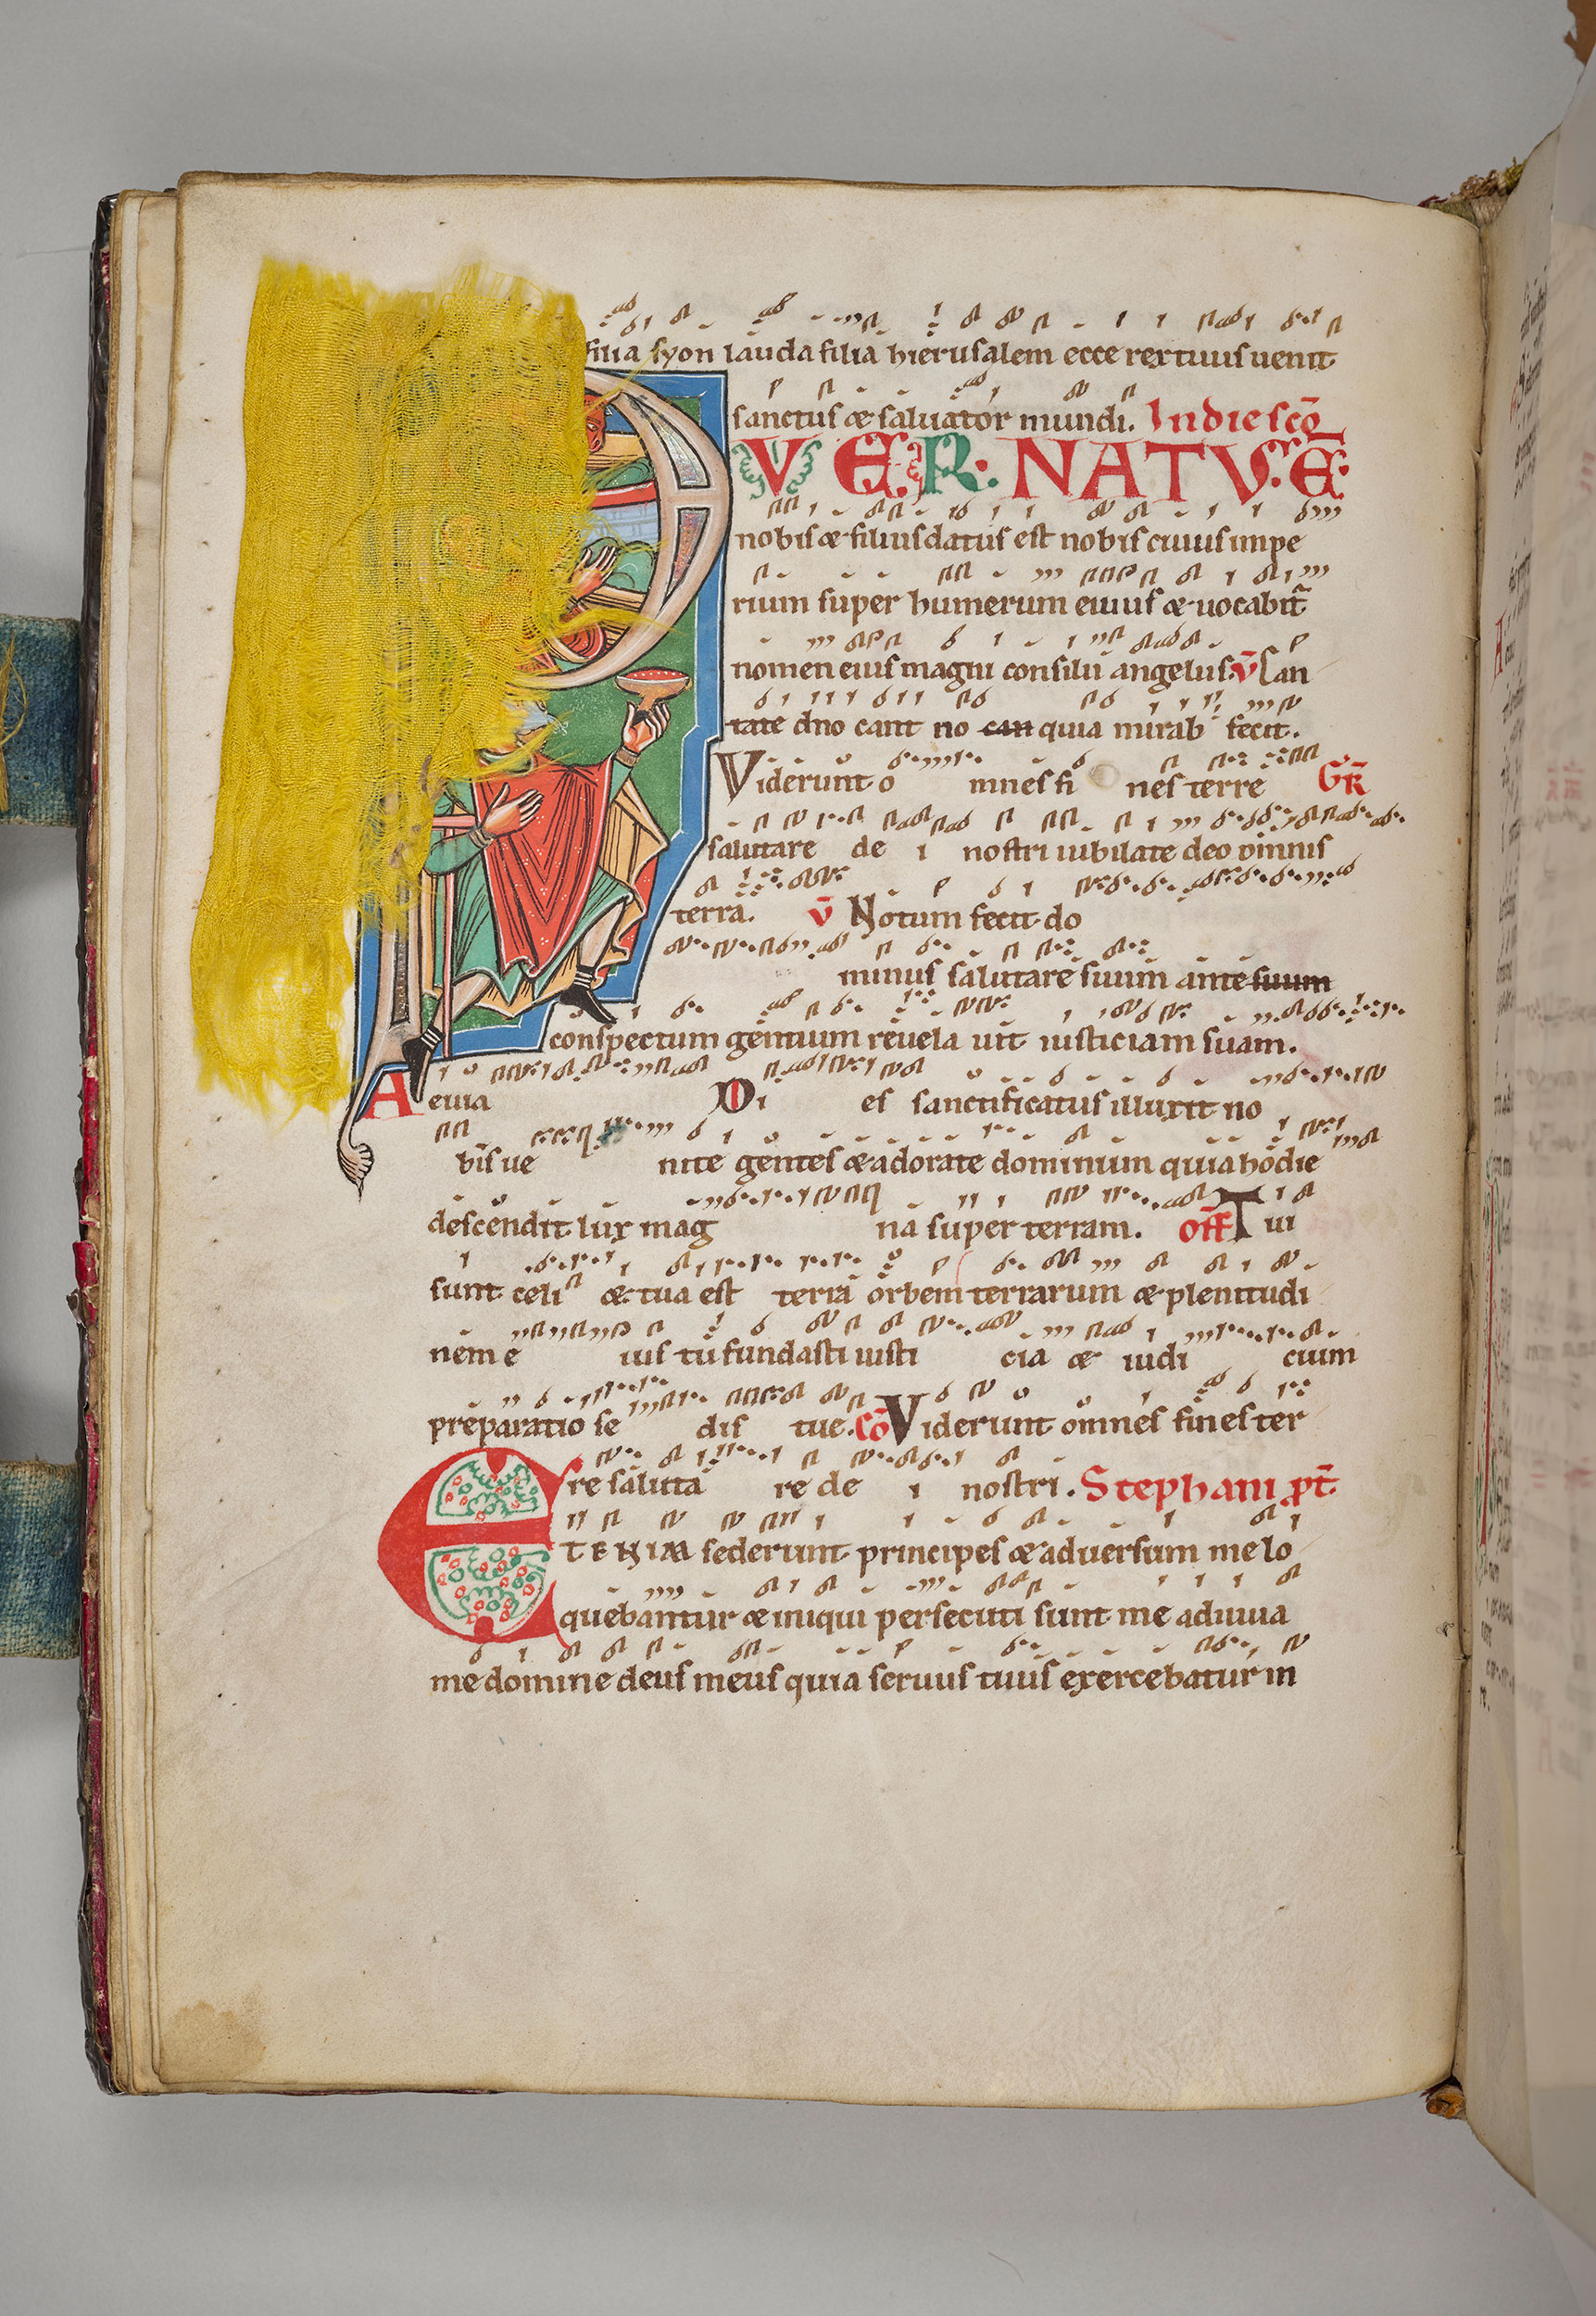 filia syon lauda filia hierusalem ecce rex tuus uenit
sanctus & saluator mundi. In die sco
VER: NATVS: E:
nobis & filius datus est nobis cuius impe
rium super humerum eiuus & uocabit
nomen eius magni consilii angelus. V San
tate dno cant no can quia mirab fecit.
Viderunt o mnes fi nes terre GR
salutare de i nostri iubilate deo omnis
terra. V Notum fecit do
minus salutare suum ante suum
conspectum gentium reuela uit iusticiam suam.
A euia Di es sanctificatus illuxit no
bis ue nite gentes & adorate dominum quia hodie
descendit lux mag na super terram. Off T ui
sunt celi & tua est terra orbem terrarum & plenitudi
nem e ius tu fundasti iusti cia & iudi cium
preparatio se dis tue. Co Viderunt omnes fines ter
re saluta re de i nostri. Stephani pt
ETENIM sederunt principes & aduersum me lo
quebantur & iniqui persecuti sunt me adiuua
me domine deus meus quia seruus tuus exercebatur in